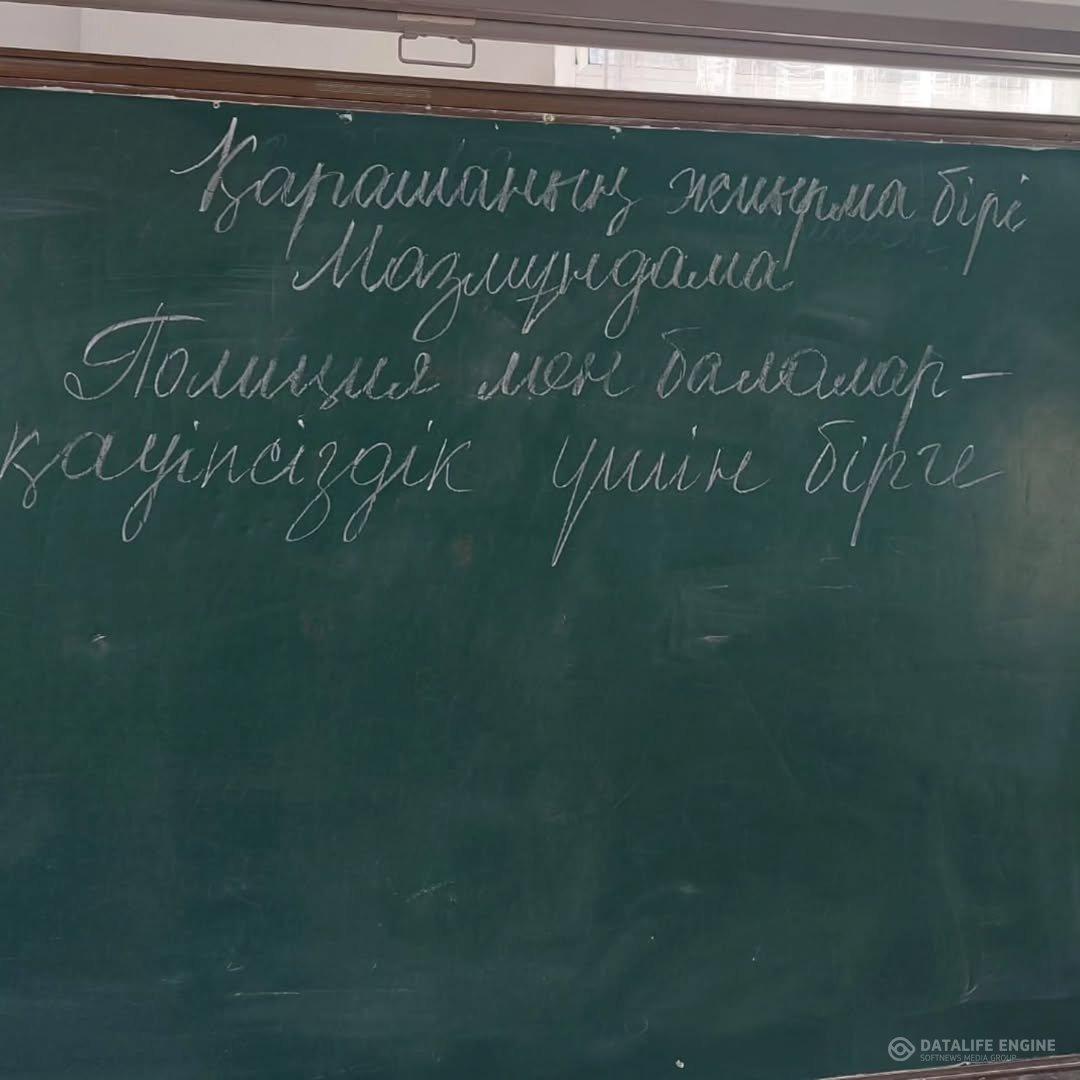 Қарашаның жиырма бірі
Мазмұндама
Полиция мен балалар –
қауіпсіздік үшін бірге
DATALIFE ENGINE
SOFTNEWS MEDIA GROUP